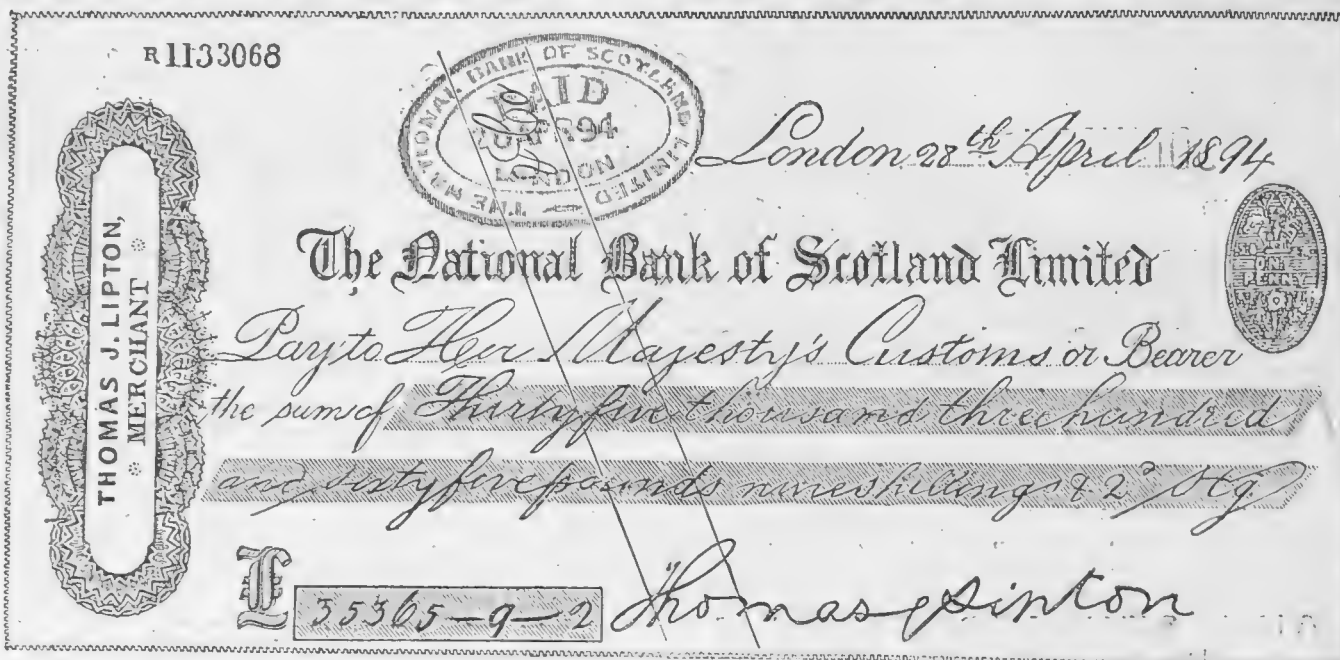 R1133068
THE NATIONAL BANK OF SCOTLAND LIMITED
PAID
94
LONDON
London 28th April 1894
THOMAS J. LIPTON,
MERCHANT
The National Bank of Scotland Limited
ONE
PENNY
Pay to Her Majesty's Customs or Bearer
the sum of Thirtyfive thousand three hundred
and sixtyfive pounds nine shillings & 2d Stg
£ 35365-9-2
Thomas J Lipton